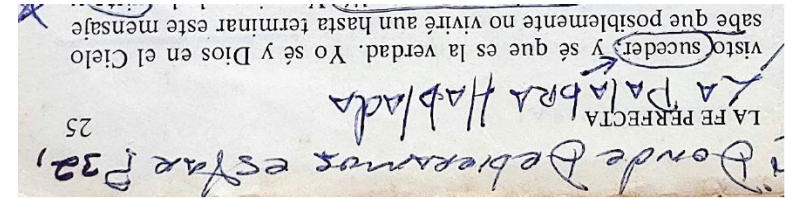 ¿Donde Debieramos estar? 32,
LA FE PERFECTA 25
LA PALABRA HABLADA
visto suceder, y sé que es la verdad. Yo sé y Dios en el Cielo
sabe que posiblemente no viviré aun hasta terminar este mensaje